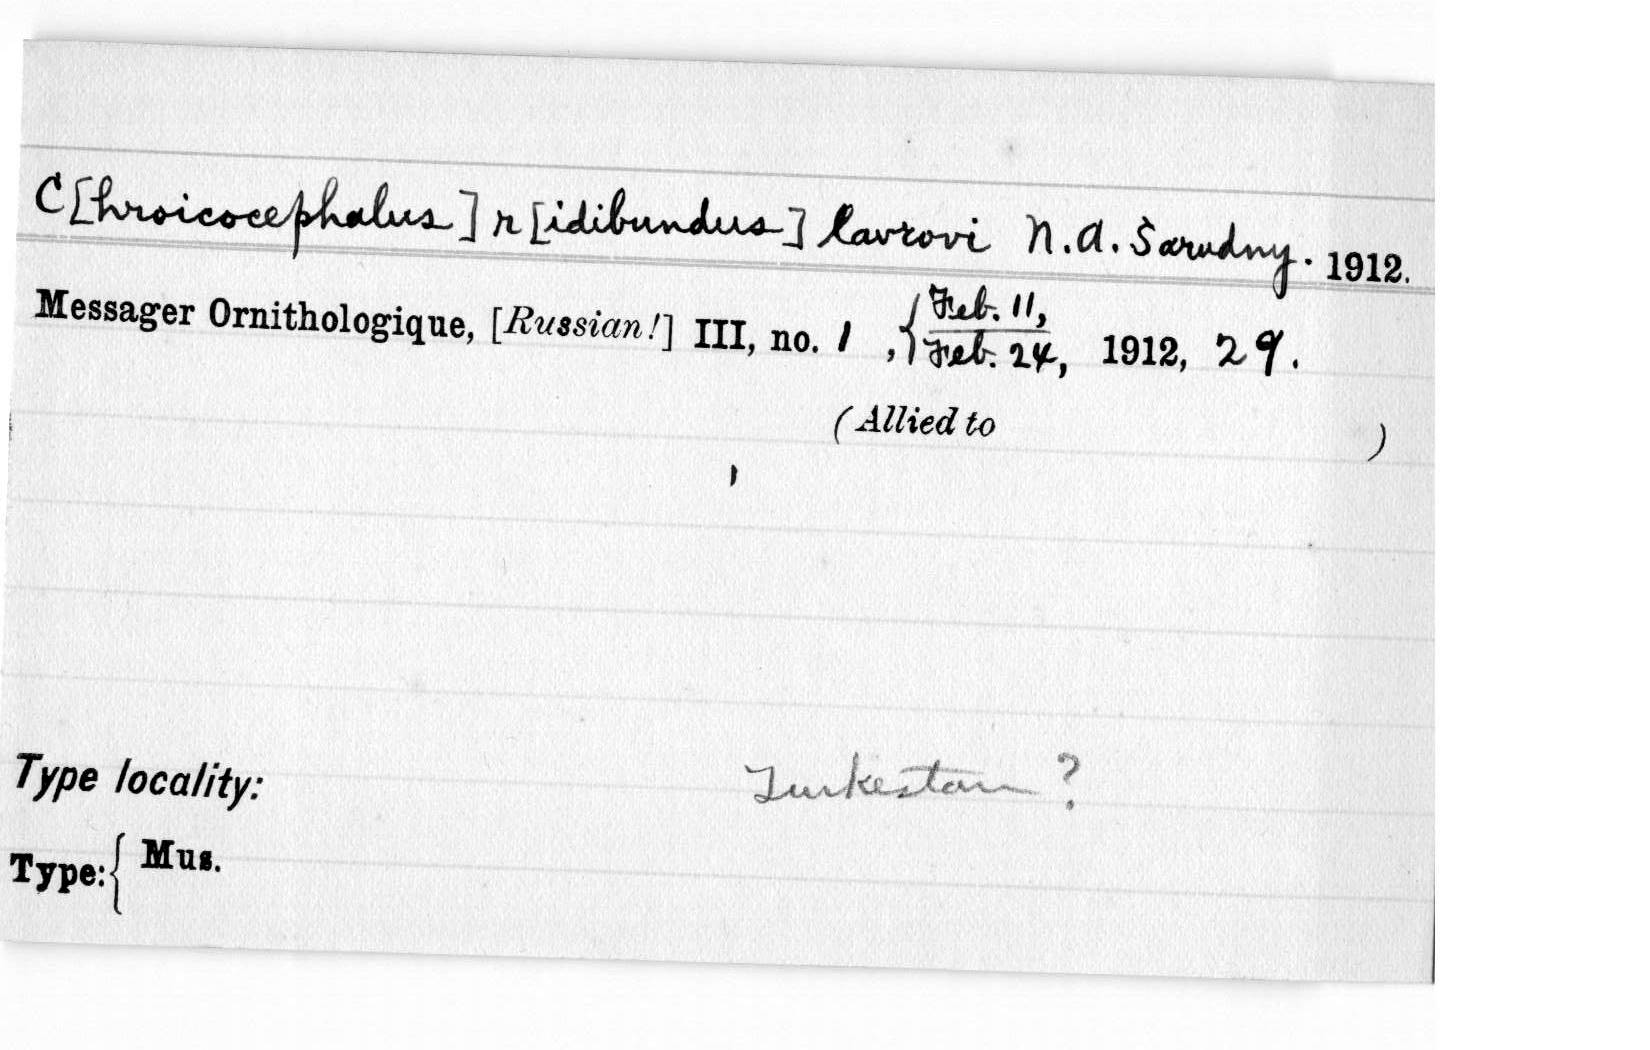 C[hroicocephalus] r[idibundus] lavrovi N.A. Sarudny. 1912.
Messager Ornithologique, [Russian!] III, no. 1, { Feb. 11, / Feb. 24, 1912, 29.
(Allied to )
Type locality: Turkestan ?
Type: { Mus.